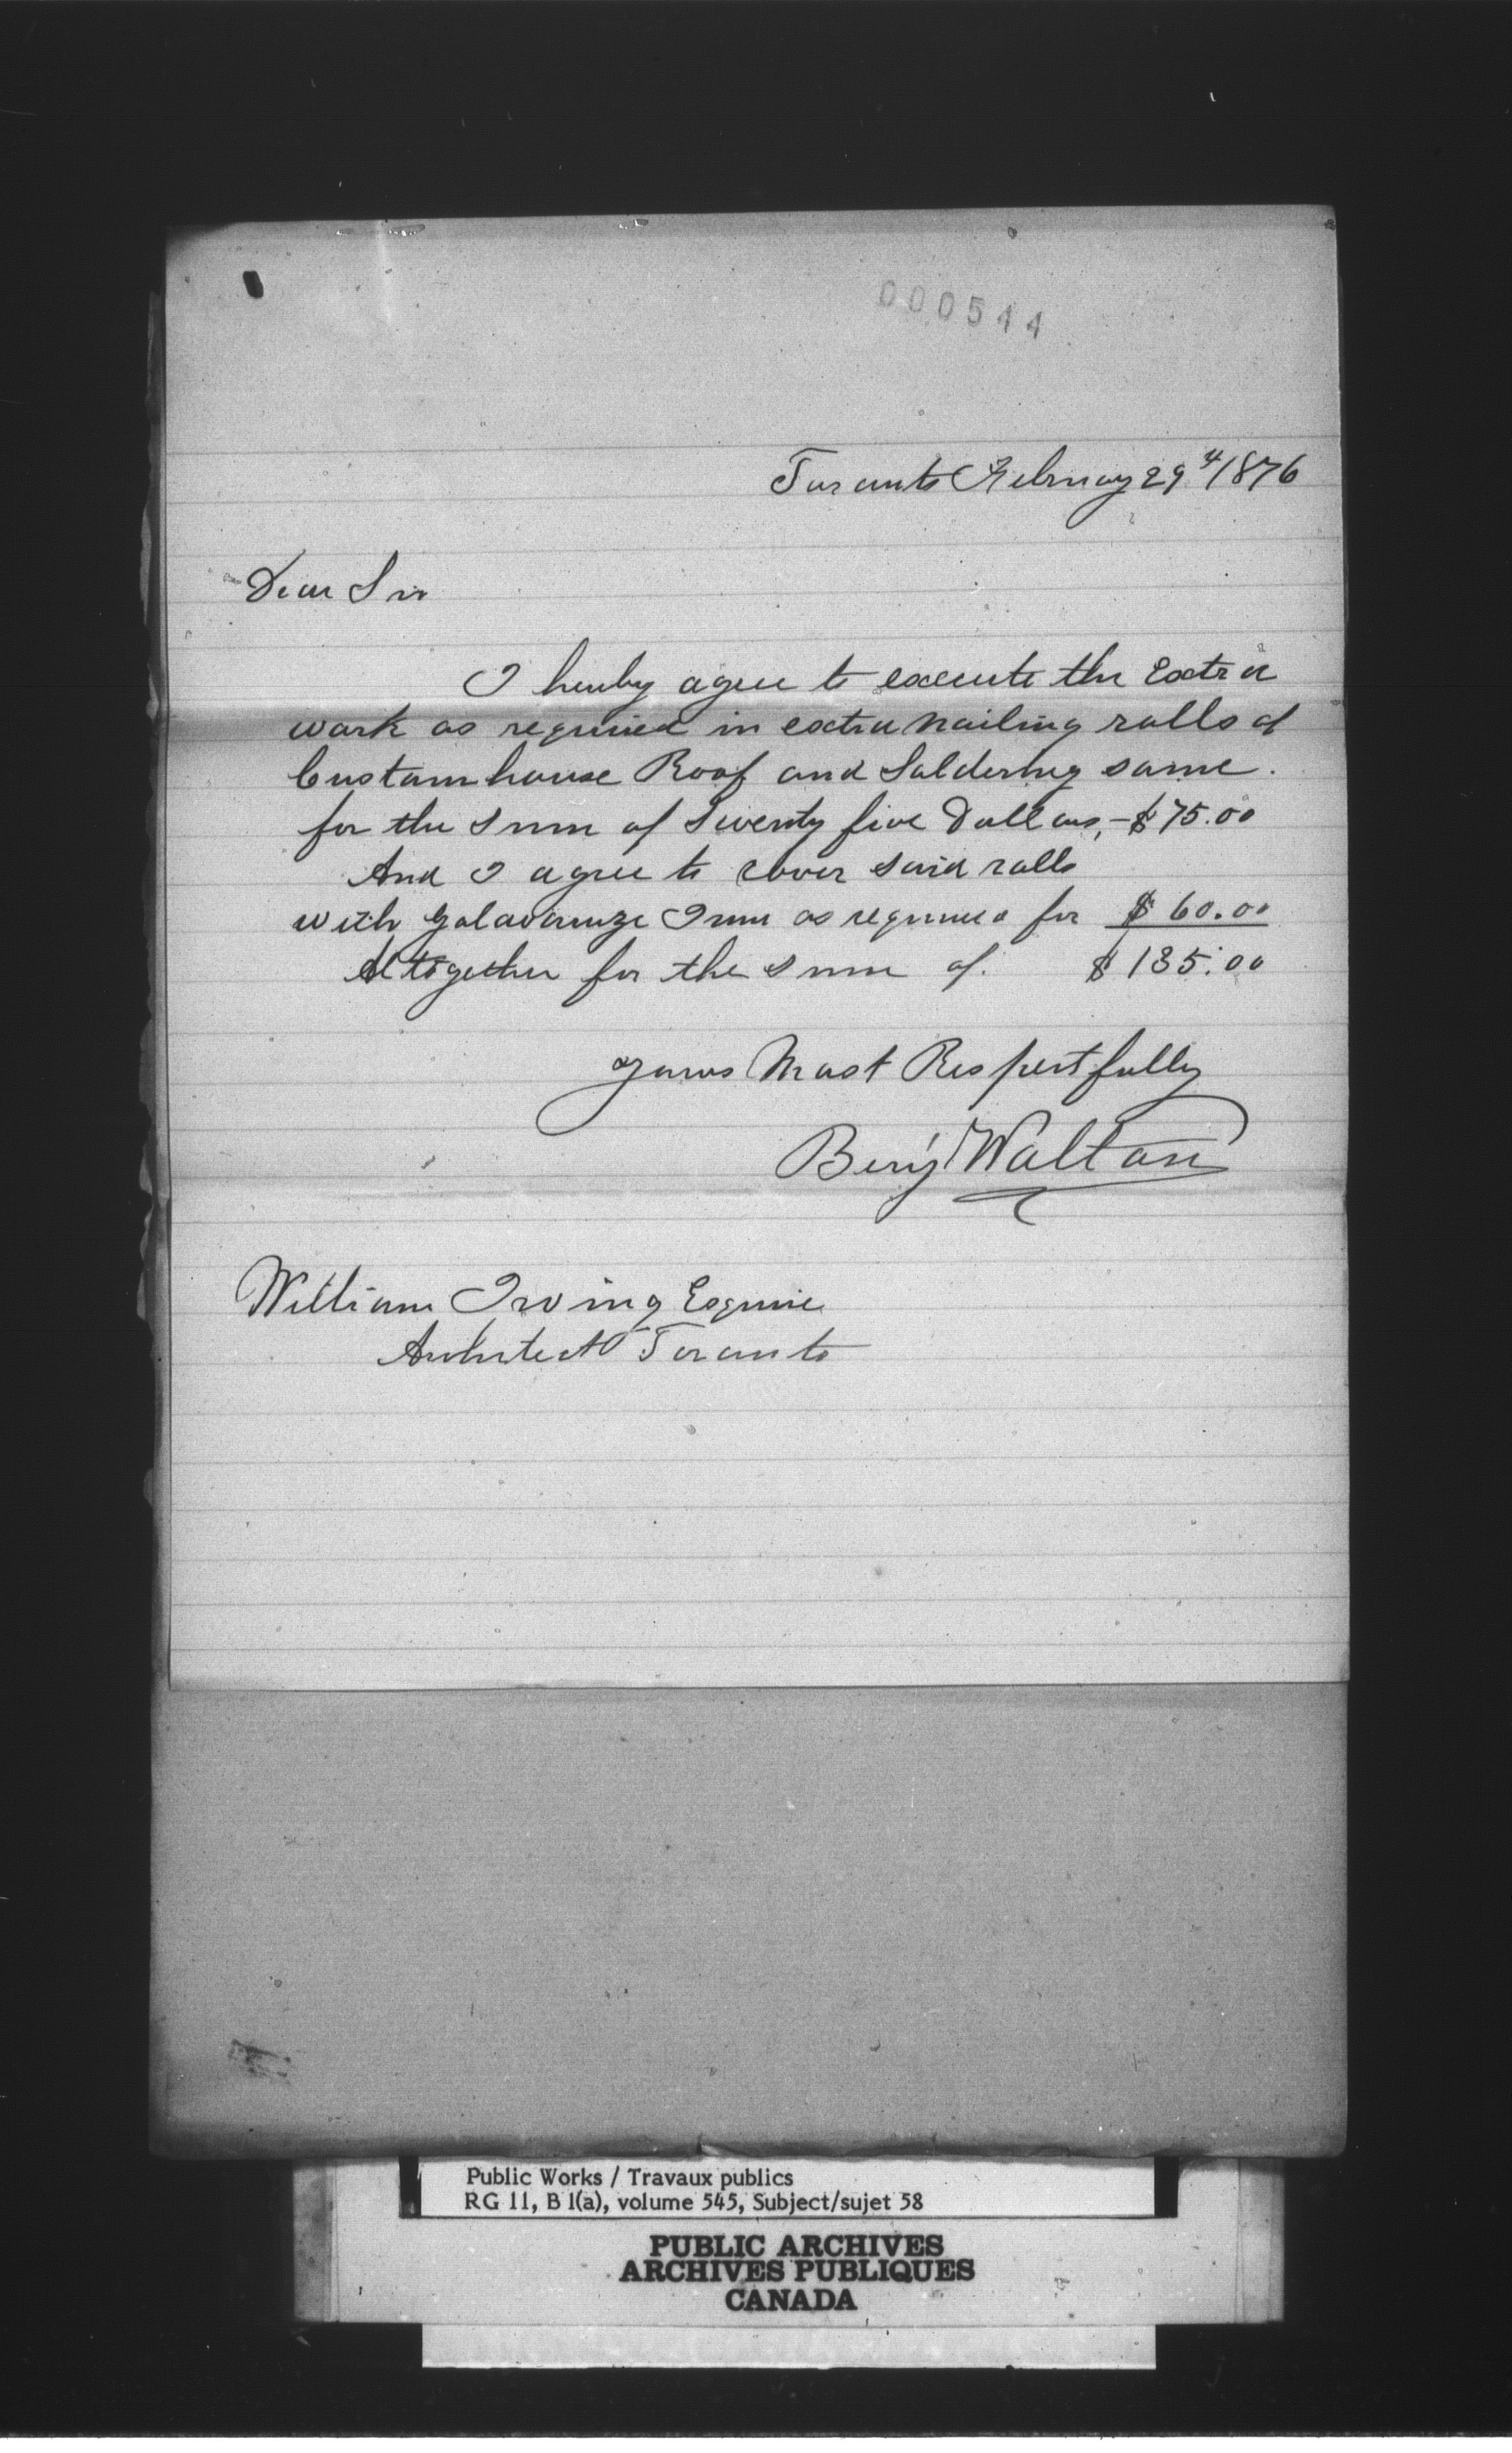 000544
Toronto February 29th/1876
Dear Sir
I hereby agree to execute the Extra
work as required in extra nailing rolls of
Customhouse Roof and Soldering same.
for the sum of Seventy five Dollars, - $75.00
And I agree to cover said rolls
with galavanize Iron as required for $60.00
Altogether for the sum of. $135.00
Yours Most Respectfully
Benj Walton
William Irving Esquire
Architect Toronto
Public Works / Travaux publics
RG 11, B 1(a), volume 545, Subject/sujet 58
PUBLIC ARCHIVES
ARCHIVES PUBLIQUES
CANADA